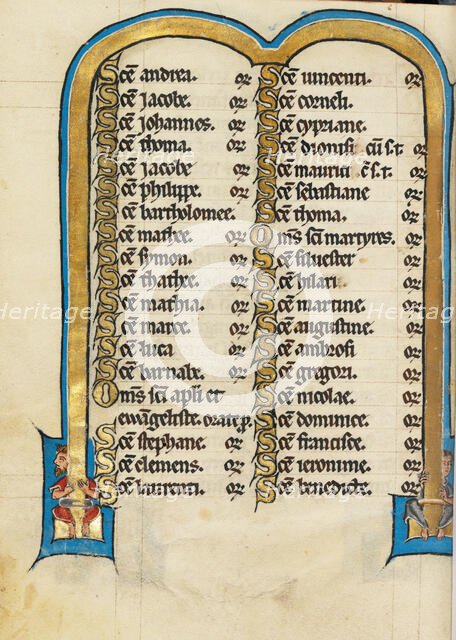 Sce andrea. or
Sce Jacobe. or
Sce Johannes. or
Sce thoma. or
Sce Jacobe or
Sce philippe. or
Sce bartholomee.
Sce mathee. or
Sce symon. or
Sce thathee. or
Sce mathia. or
Sce marce. or
Sce luca or
Sce barnabe. or
Oms sci apli et
ewangeliste. orate p.
Sce stephane. or
Sce clemens. or
Sce laurenti. or
Sce vincenti. or
Sce corneli.
Sce cypriane.
Sce dionisi cu s.t or
Sce maurici c s.t or
Sce sebastiane or
Sce thoma. or
Oms sci martyres. or
Sce siluester or
Sce hilari. or
Sce martine. or
Sce augustine. or
Sce ambrosi or
Sce gregori. or
Sce nicolae. or
Sce dominice. or
Sce francisce. or
Sce ieronime. or
Sce benedicte. or
Heritage
Heritage
Heritage
Heritage